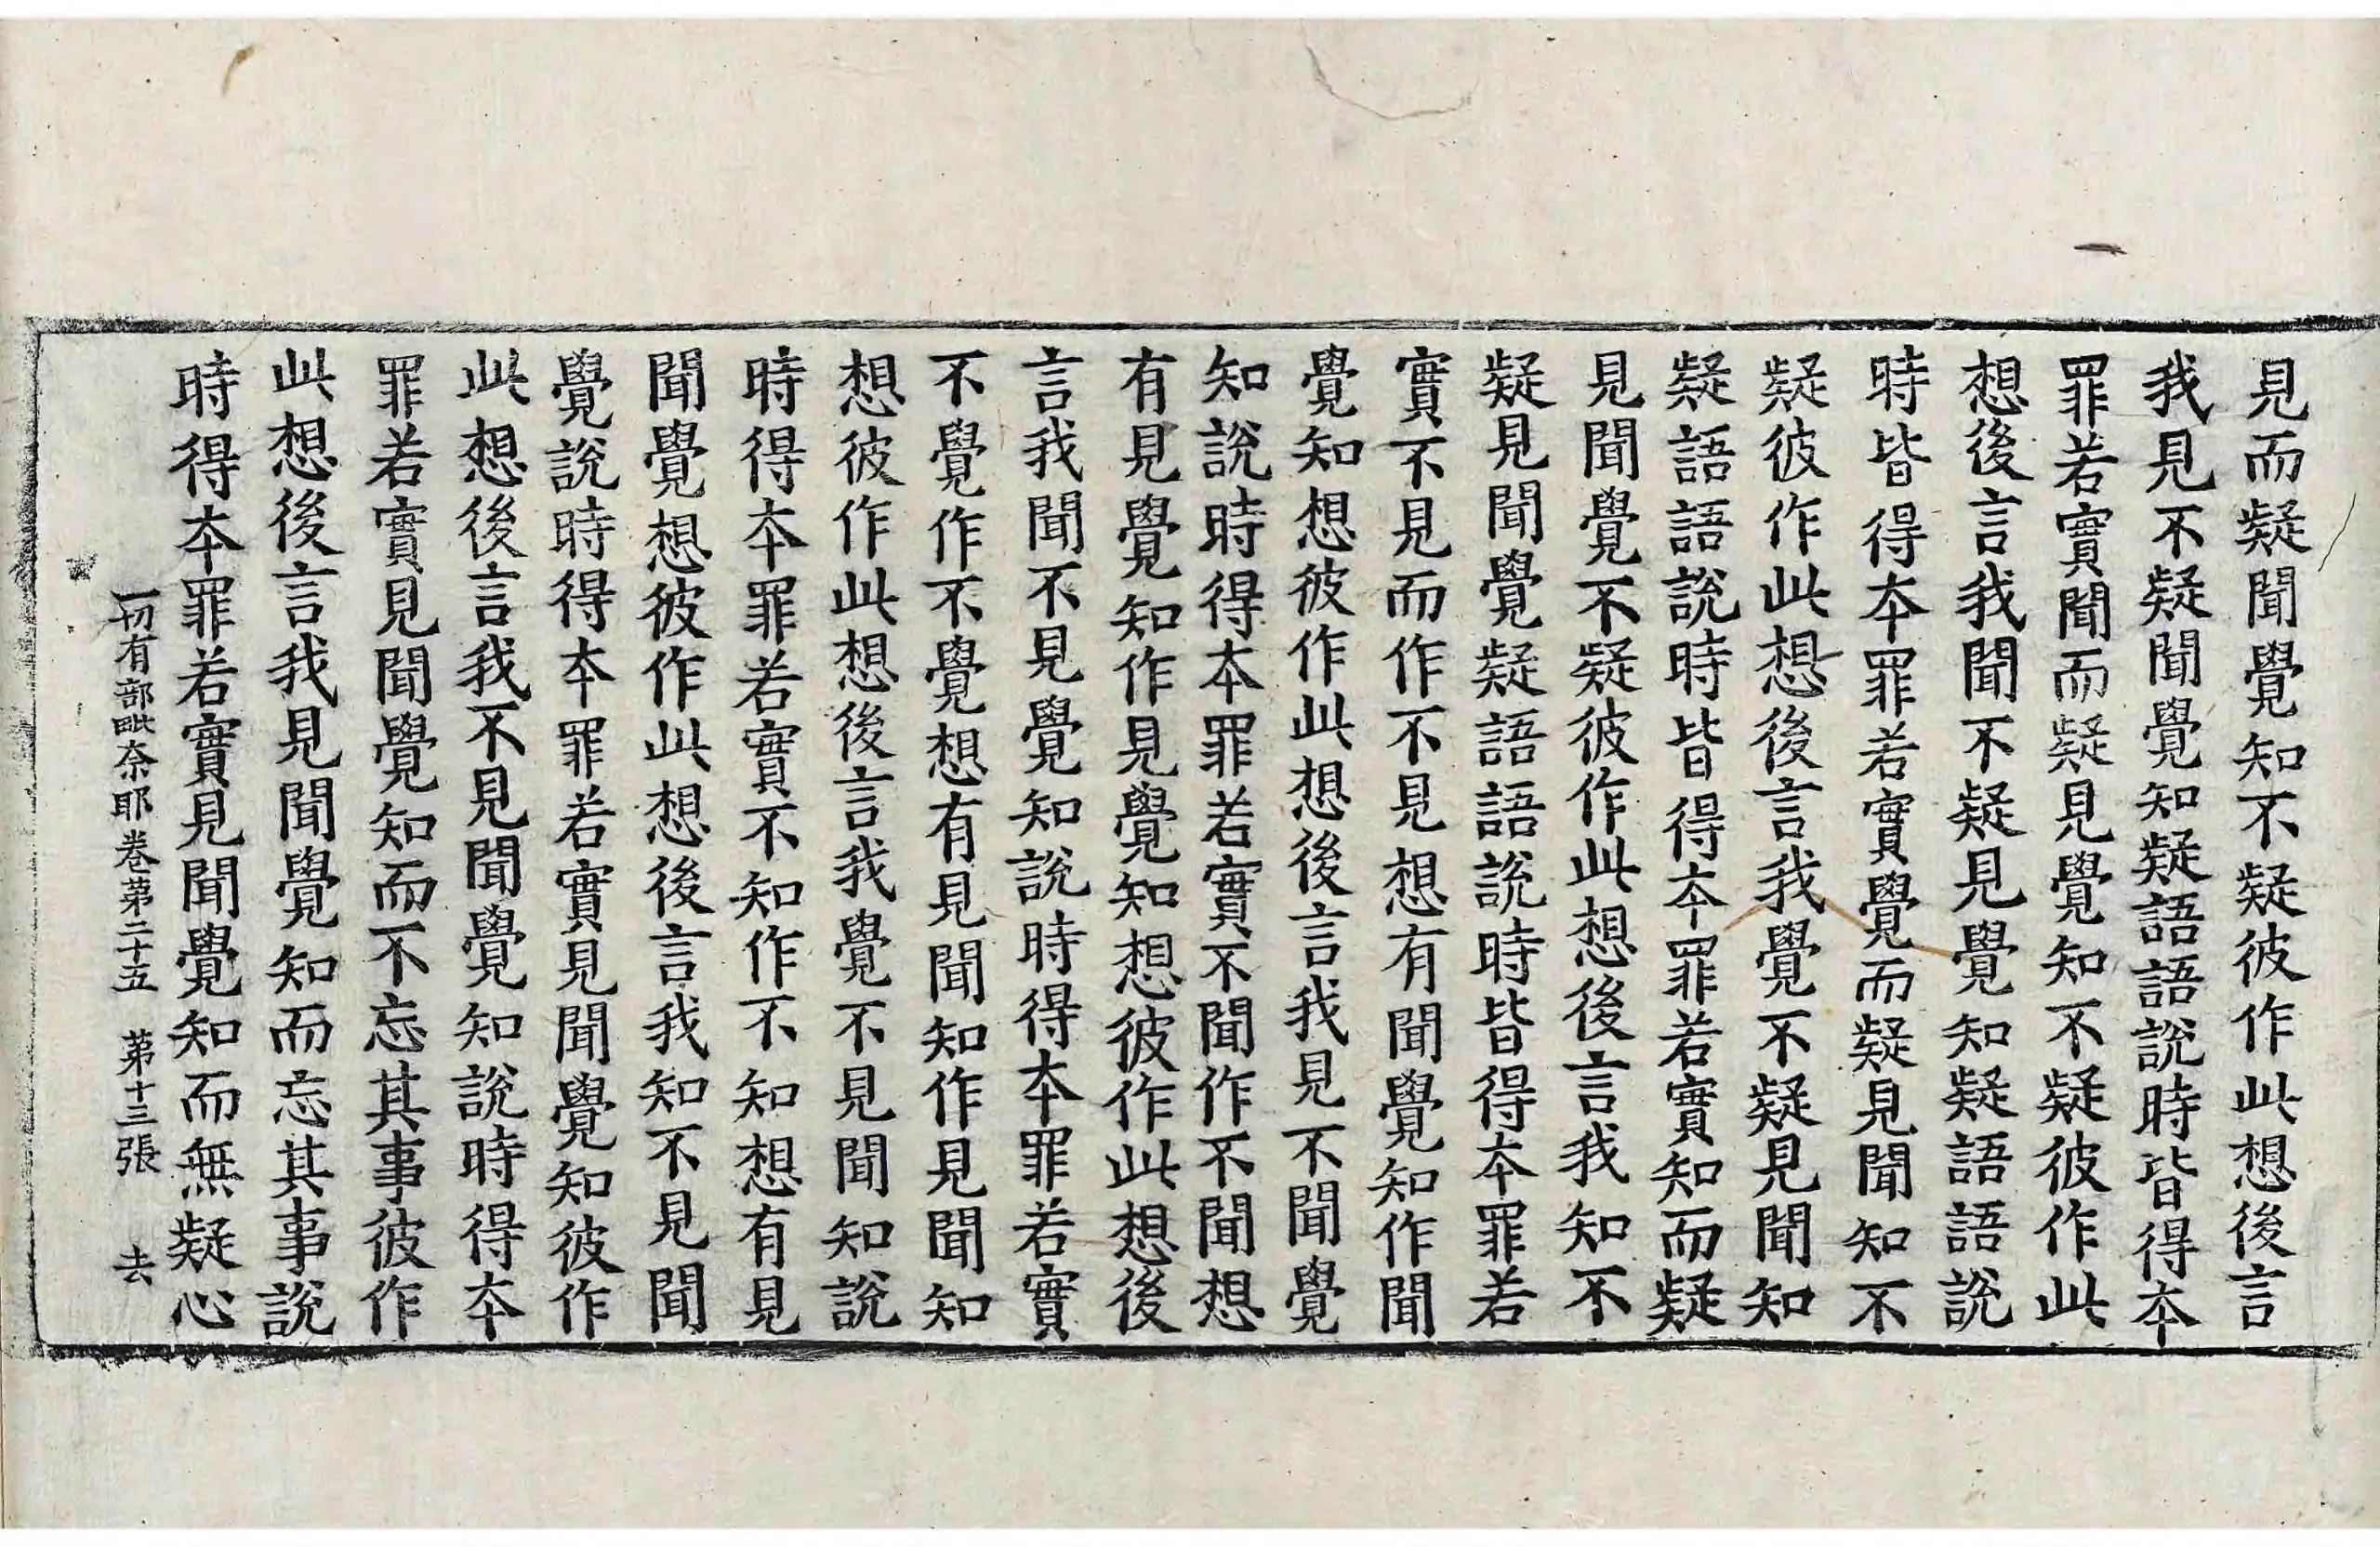 見而疑聞覺知不疑彼作此想後言
我見不疑聞覺知疑語語說時皆得本
罪若實聞而疑見覺知不疑彼作此
想後言我聞不疑見覺知疑語語說
時皆得本罪若實覺而疑見聞知不
疑彼作此想後言我覺不疑見聞知
疑語語說時皆得本罪若實知而疑
見聞覺不疑彼作此想後言我知不
疑見聞覺疑語語說時皆得本罪若
實不見而作不見想有聞覺知作聞
覺知想彼作此想後言我見不聞覺
知說時得本罪若實不聞作不聞想
有見覺知作見覺知想彼作此想後
言我聞不見覺知說時得本罪若實
不覺作不覺想有見聞知作見聞知
想彼作此想後言我覺不見聞知說
時得本罪若實不知作不知想有見
聞覺想彼作此想後言我知不見聞
覺說時得本罪若實見聞覺知彼作
此想後言我不見聞覺知說時得本
罪若實見聞覺知而不忘其事彼作
此想後言我見聞覺知而忘其事說
時得本罪若實見聞覺知而無疑心
一切有部毗奈耶卷第二十五 第十三張 去